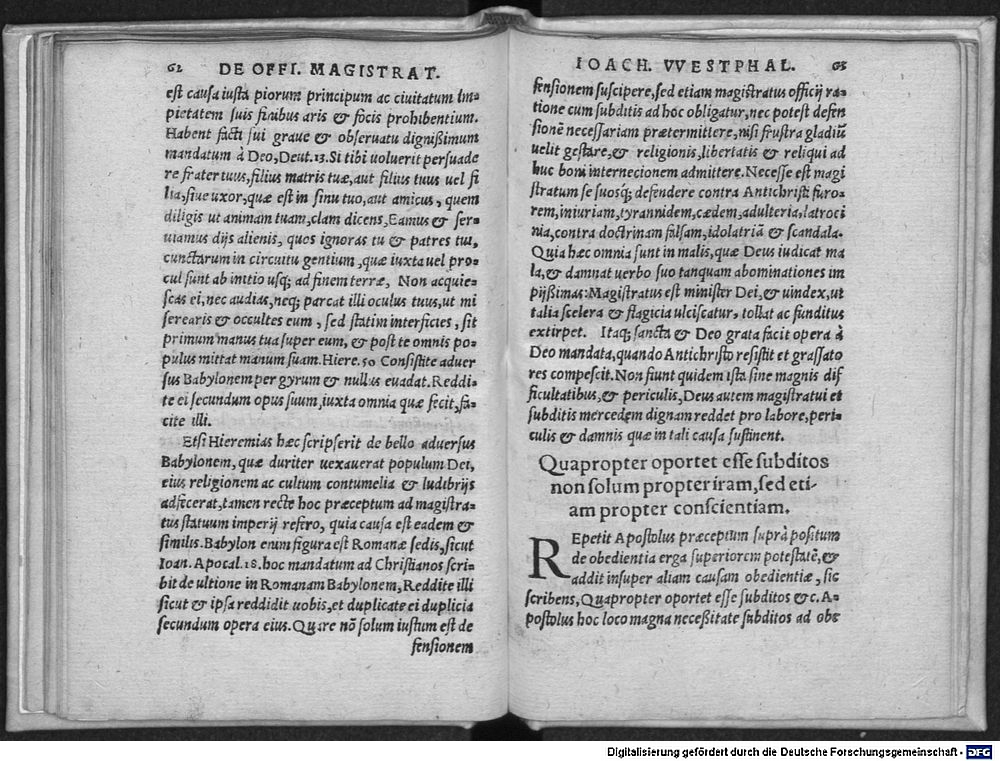 62 DE OFFI. MAGISTRAT.
est causa iusta piorum principum ac ciuitatum im-
pietatem suis finibus aris & focis prohibentium.
Habent facti sui graue & obseruatu dignißimum
mandatum à Deo, Deut. 13. Si tibi uoluerit persuade
re frater tuus, filius matris tuæ, aut filius tuus uel fi
lia, siue uxor, quæ est in sinu tuo, aut amicus, quem
diligis ut animam tuam, clam dicens, Eamus & ser-
uiamus dijs alienis, quos ignoras tu & patres tui,
cunctarum in circuitu gentium, quæ iuxta uel pro-
cul sunt ab initio usq; ad finem terræ, Non acquie-
scas ei, nec audias, neq; parcat illi oculus tuus, ut mi
serearis & occultes eum, sed statim interficies, sit
primum manus tua super eum, & post te omnis po-
pulus mittat manum suam. Hiere. 50 Consistite aduer
sus Babylonem per gyrum & nullus euadat. Reddi-
te ei secundum opus suum, iuxta omnia quæ fecit, fa-
cite illi.
Etsi Hieremias hæc scripserit de bello aduersus
Babylonem, quæ duriter uexauerat populum Dei,
eius religionem ac cultum contumelia & ludibrijs
adfecerat, tamen recte hoc præceptum ad magistra-
tus statuum imperij refero, quia causa est eadem &
similis. Babylon enim figura est Romanæ sedis, sicut
Ioan. Apocal. 18. hoc mandatum ad Christianos scri-
bit de ultione in Romanam Babylonem, Reddite illi
sicut & ipsa reddidit uobis, et duplicate ei duplicia
secundum opera eius. Quare nõ solum iustum est de
fensionem
IOACH. VVESTPHAL. 63
fensionem suscipere, sed etiam magistratus officij ra-
tione cum subditis ad hoc obligatur, nec potest defen
sionẽ necessariam prætermittere, nisi frustra gladiũ
uelit gestare, & religionis, libertatis & reliqui ad
huc boni internecionem admittere. Necesse est magi
stratum se suosq; defendere contra Antichristi furo-
rem, iniuriam, tyrannidem, cædem, adulteria, latroci
nia, contra doctrinam falsam, idolatriã & scandala.
Quia hæc omnia sunt in malis, quæ Deus iudicat ma
la, & damnat uerbo suo tanquam abominationes im
pijßimas: Magistratus est minister Dei, & uindex, ut
talia scelera & flagicia ulciscatur, tollat ac funditus
extirpet. Itaq; sancta & Deo grata facit opera à
Deo mandata, quando Antichristo resistit et grassato
res compescit. Non fiunt quidem ista sine magnis dif
ficultatibus, & periculis, Deus autem magistratui et
subditis mercedem dignam reddet pro labore, peri-
culis & damnis quæ in tali causa sustinent.
Quapropter oportet esse subditos
non solum propter iram, sed eti-
am propter conscientiam.
REpetit Apostolus præceptum suprà positum
de obedientia erga superiorem potestatẽ, &
addit insuper aliam causam obedientiæ, sic
scribens, Quapropter oportet esse subditos &c. A-
postolus hoc loco magna neceßitate subditos ad obe
Digitalisierung gefördert durch die Deutsche Forschungsgemeinschaft - DFG